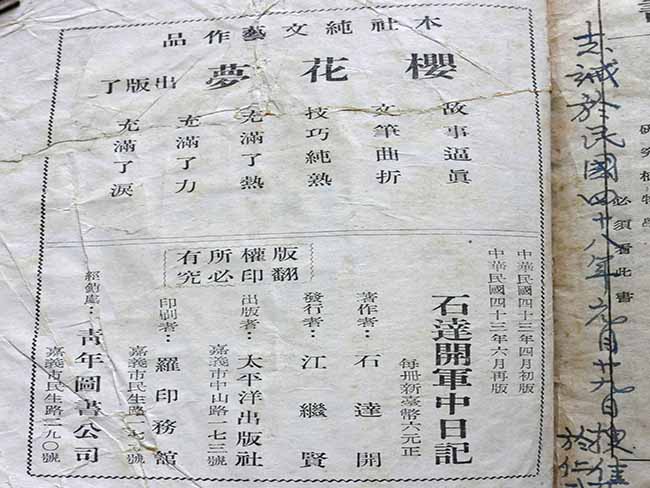 本社純文藝作品
櫻花夢 出版了
故事逼眞
文筆曲折
技巧純熟
充滿了熱
充滿了力
充滿了淚
版權所有
翻印必究
中華民國四十三年四月初版
中華民國四十三年六月再版
石達開軍中日記
每冊新臺幣六元正
著作者：石達開
發行者：江繼賢
出版者：太平洋出版社
嘉義市中山路一七三號
印刷者：羅印務館
嘉義市民生路一七號
經銷處：靑年圖書公司
嘉義市民生路二九〇號
必須看此書
志誠於民國四十八年元月廿九日